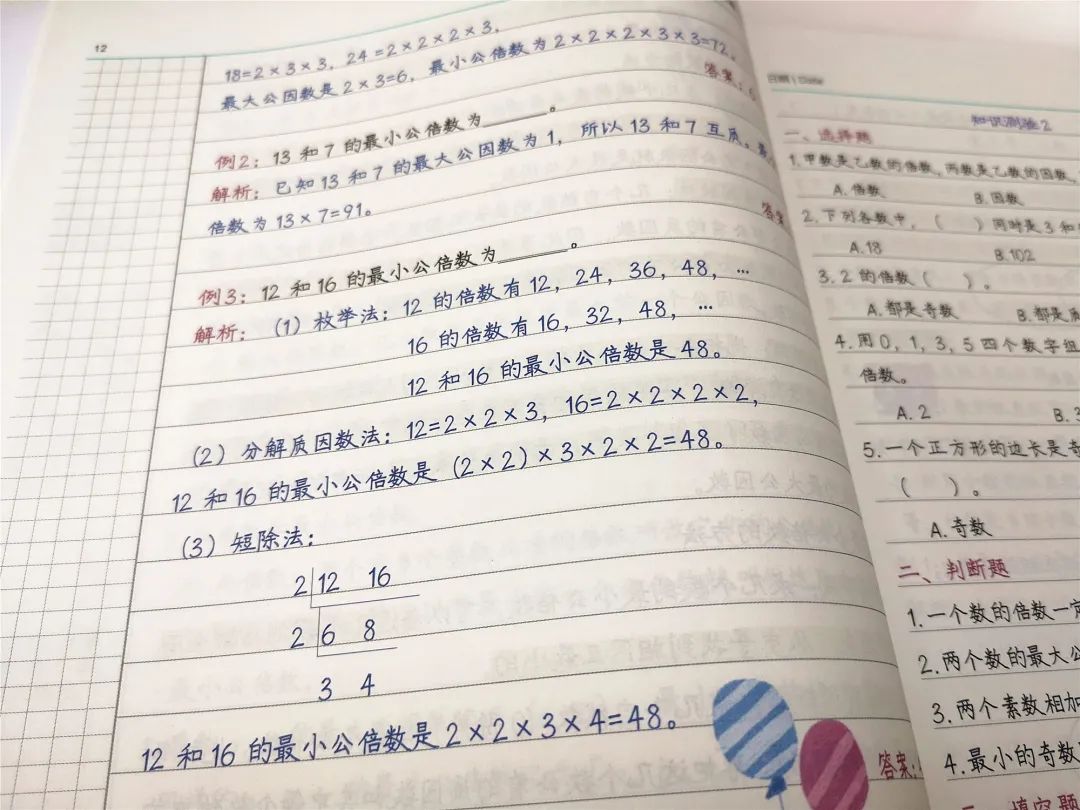 12
18=2×3×3，24=2×2×2×3，
最大公因数是2×3=6，最小公倍数为2×2×2×3×3=72。
答案：6
例2：13和7的最小公倍数为______。
解析：已知13和7的最大公因数为1，所以13和7互质。
倍数为13×7=91。
答案
例3：12和16的最小公倍数为______。
解析：（1）枚举法：12的倍数有12，24，36，48，…
16的倍数有16，32，48，…
12和16的最小公倍数是48。
（2）分解质因数法：12=2×2×3，16=2×2×2×2，
12和16的最小公倍数是（2×2）×3×2×2=48。
（3）短除法：
2 12 16
2 6 8
3 4
12和16的最小公倍数是2×2×3×4=48。
答案：
日期 | Date
知识测验2
一、选择题
1.甲数是乙数的倍数，丙数是乙数的因数，
A.倍数 B.因数
2.下列各数中，（ ）同时是3和
A.18 B.102
3.2的倍数（ ）。
A.都是奇数 B.都是质
4.用0，1，3，5四个数字组
倍数。
A.2 B.3
5.一个正方形的边长是奇
（ ）。
A.奇数
二、判断题
1.一个数的倍数一定
2.两个数的最大公
3.两个素数相加
4.最小的奇数
填空题